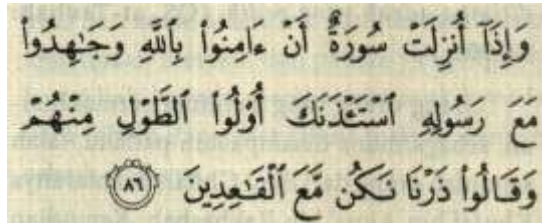 وَإِذَآ أُنزِلَتْ سُورَةٌ أَنْ ءَامِنُوا۟ بِٱللَّهِ وَجَٰهِدُوا۟
مَعَ رَسُولِهِ ٱسْتَـْٔذَنَكَ أُو۟لُوا۟ ٱلطَّوْلِ مِنْهُمْ
وَقَالُوا۟ ذَرْنَا نَكُن مَّعَ ٱلْقَٰعِدِينَ ٨٦